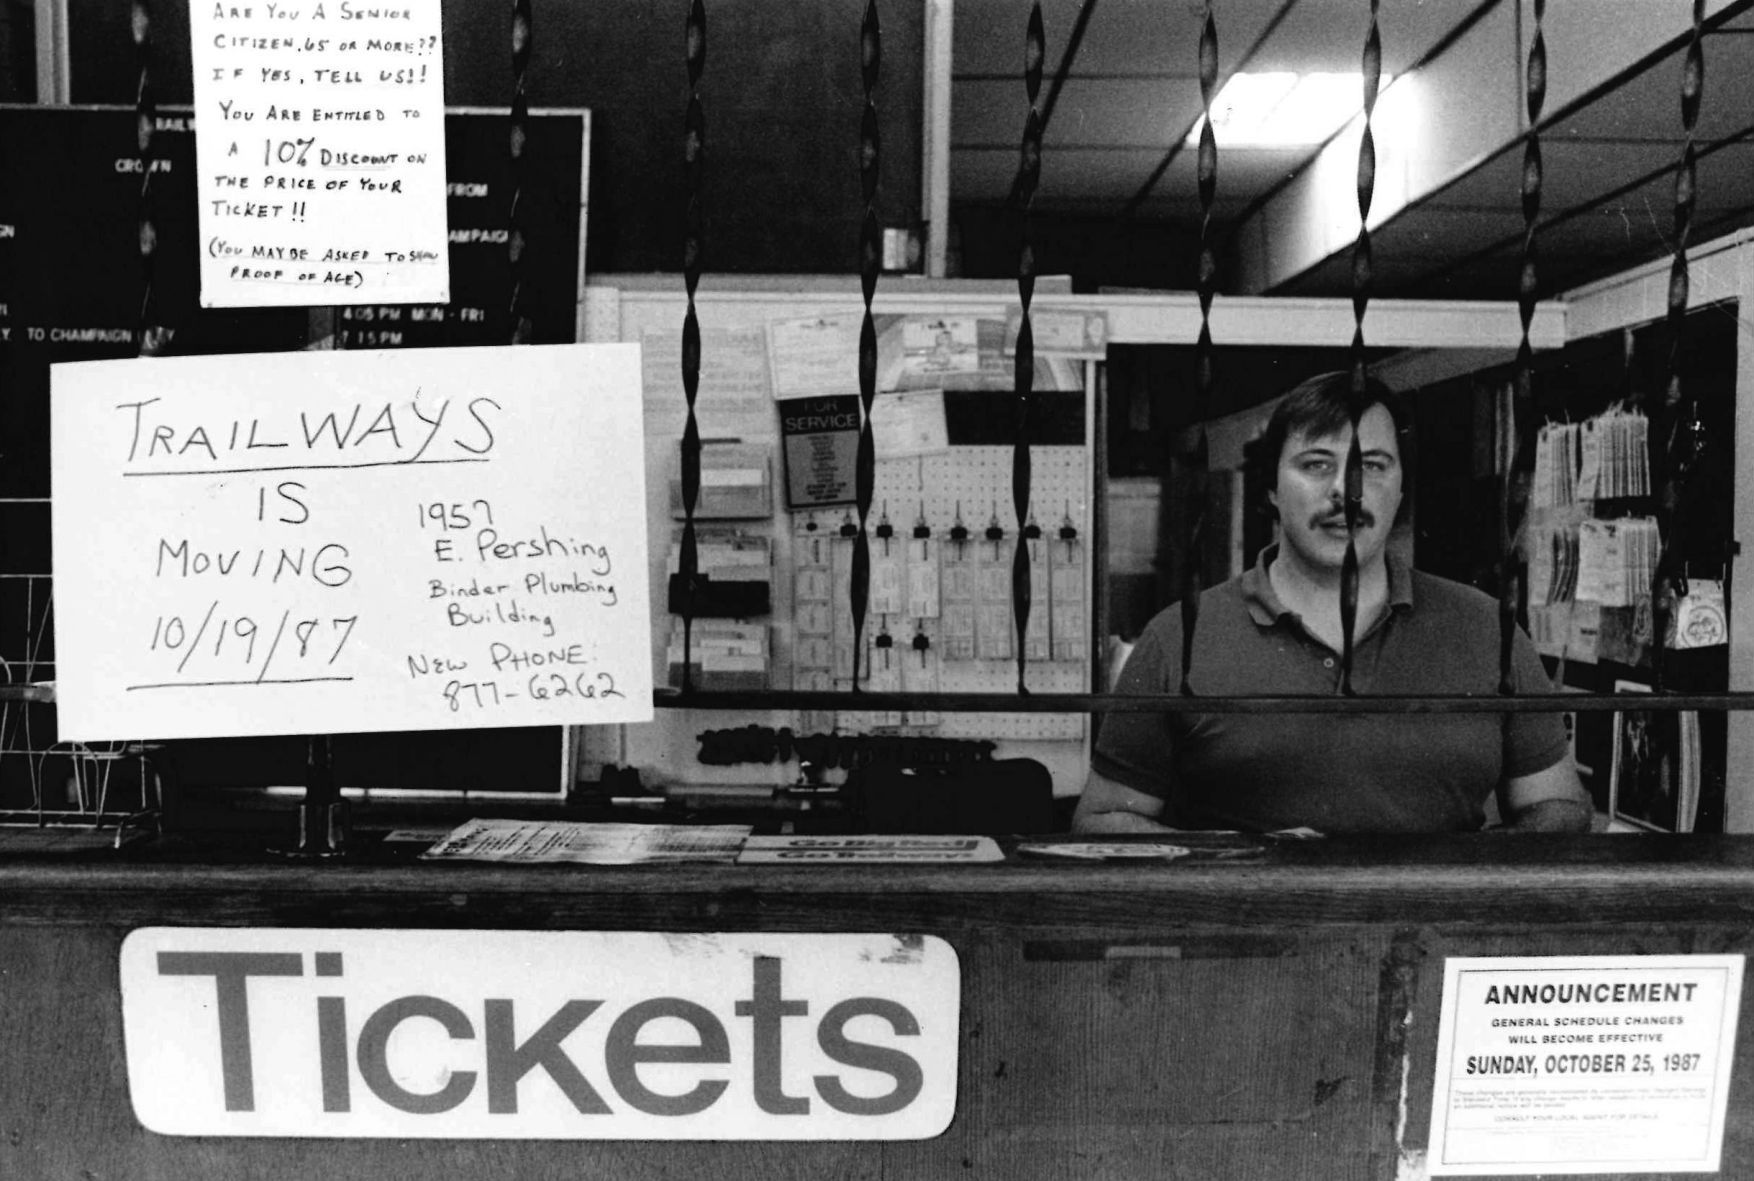 ARE YOU A SENIOR
CITIZEN, 65 OR MORE??
IF YES, TELL US!!
YOU ARE ENTITLED TO
A 10% DISCOUNT ON
THE PRICE OF YOUR
TICKET!!
(YOU MAY BE ASKED TO SHOW
PROOF OF AGE)
FROM
4 05 PM MON - FRI
TO CHAMPAIGN
7 15 PM
TRAILWAYS
IS
MOVING
10/19/87
1957
E. Pershing
Binder Plumbing
Building
NEW PHONE:
877-6262
FOR
SERVICE
Go Big Red
Go Trailways
Tickets
ANNOUNCEMENT
GENERAL SCHEDULE CHANGES
WILL BECOME EFFECTIVE
SUNDAY, OCTOBER 25, 1987
CONSULT YOUR LOCAL AGENT FOR DETAILS